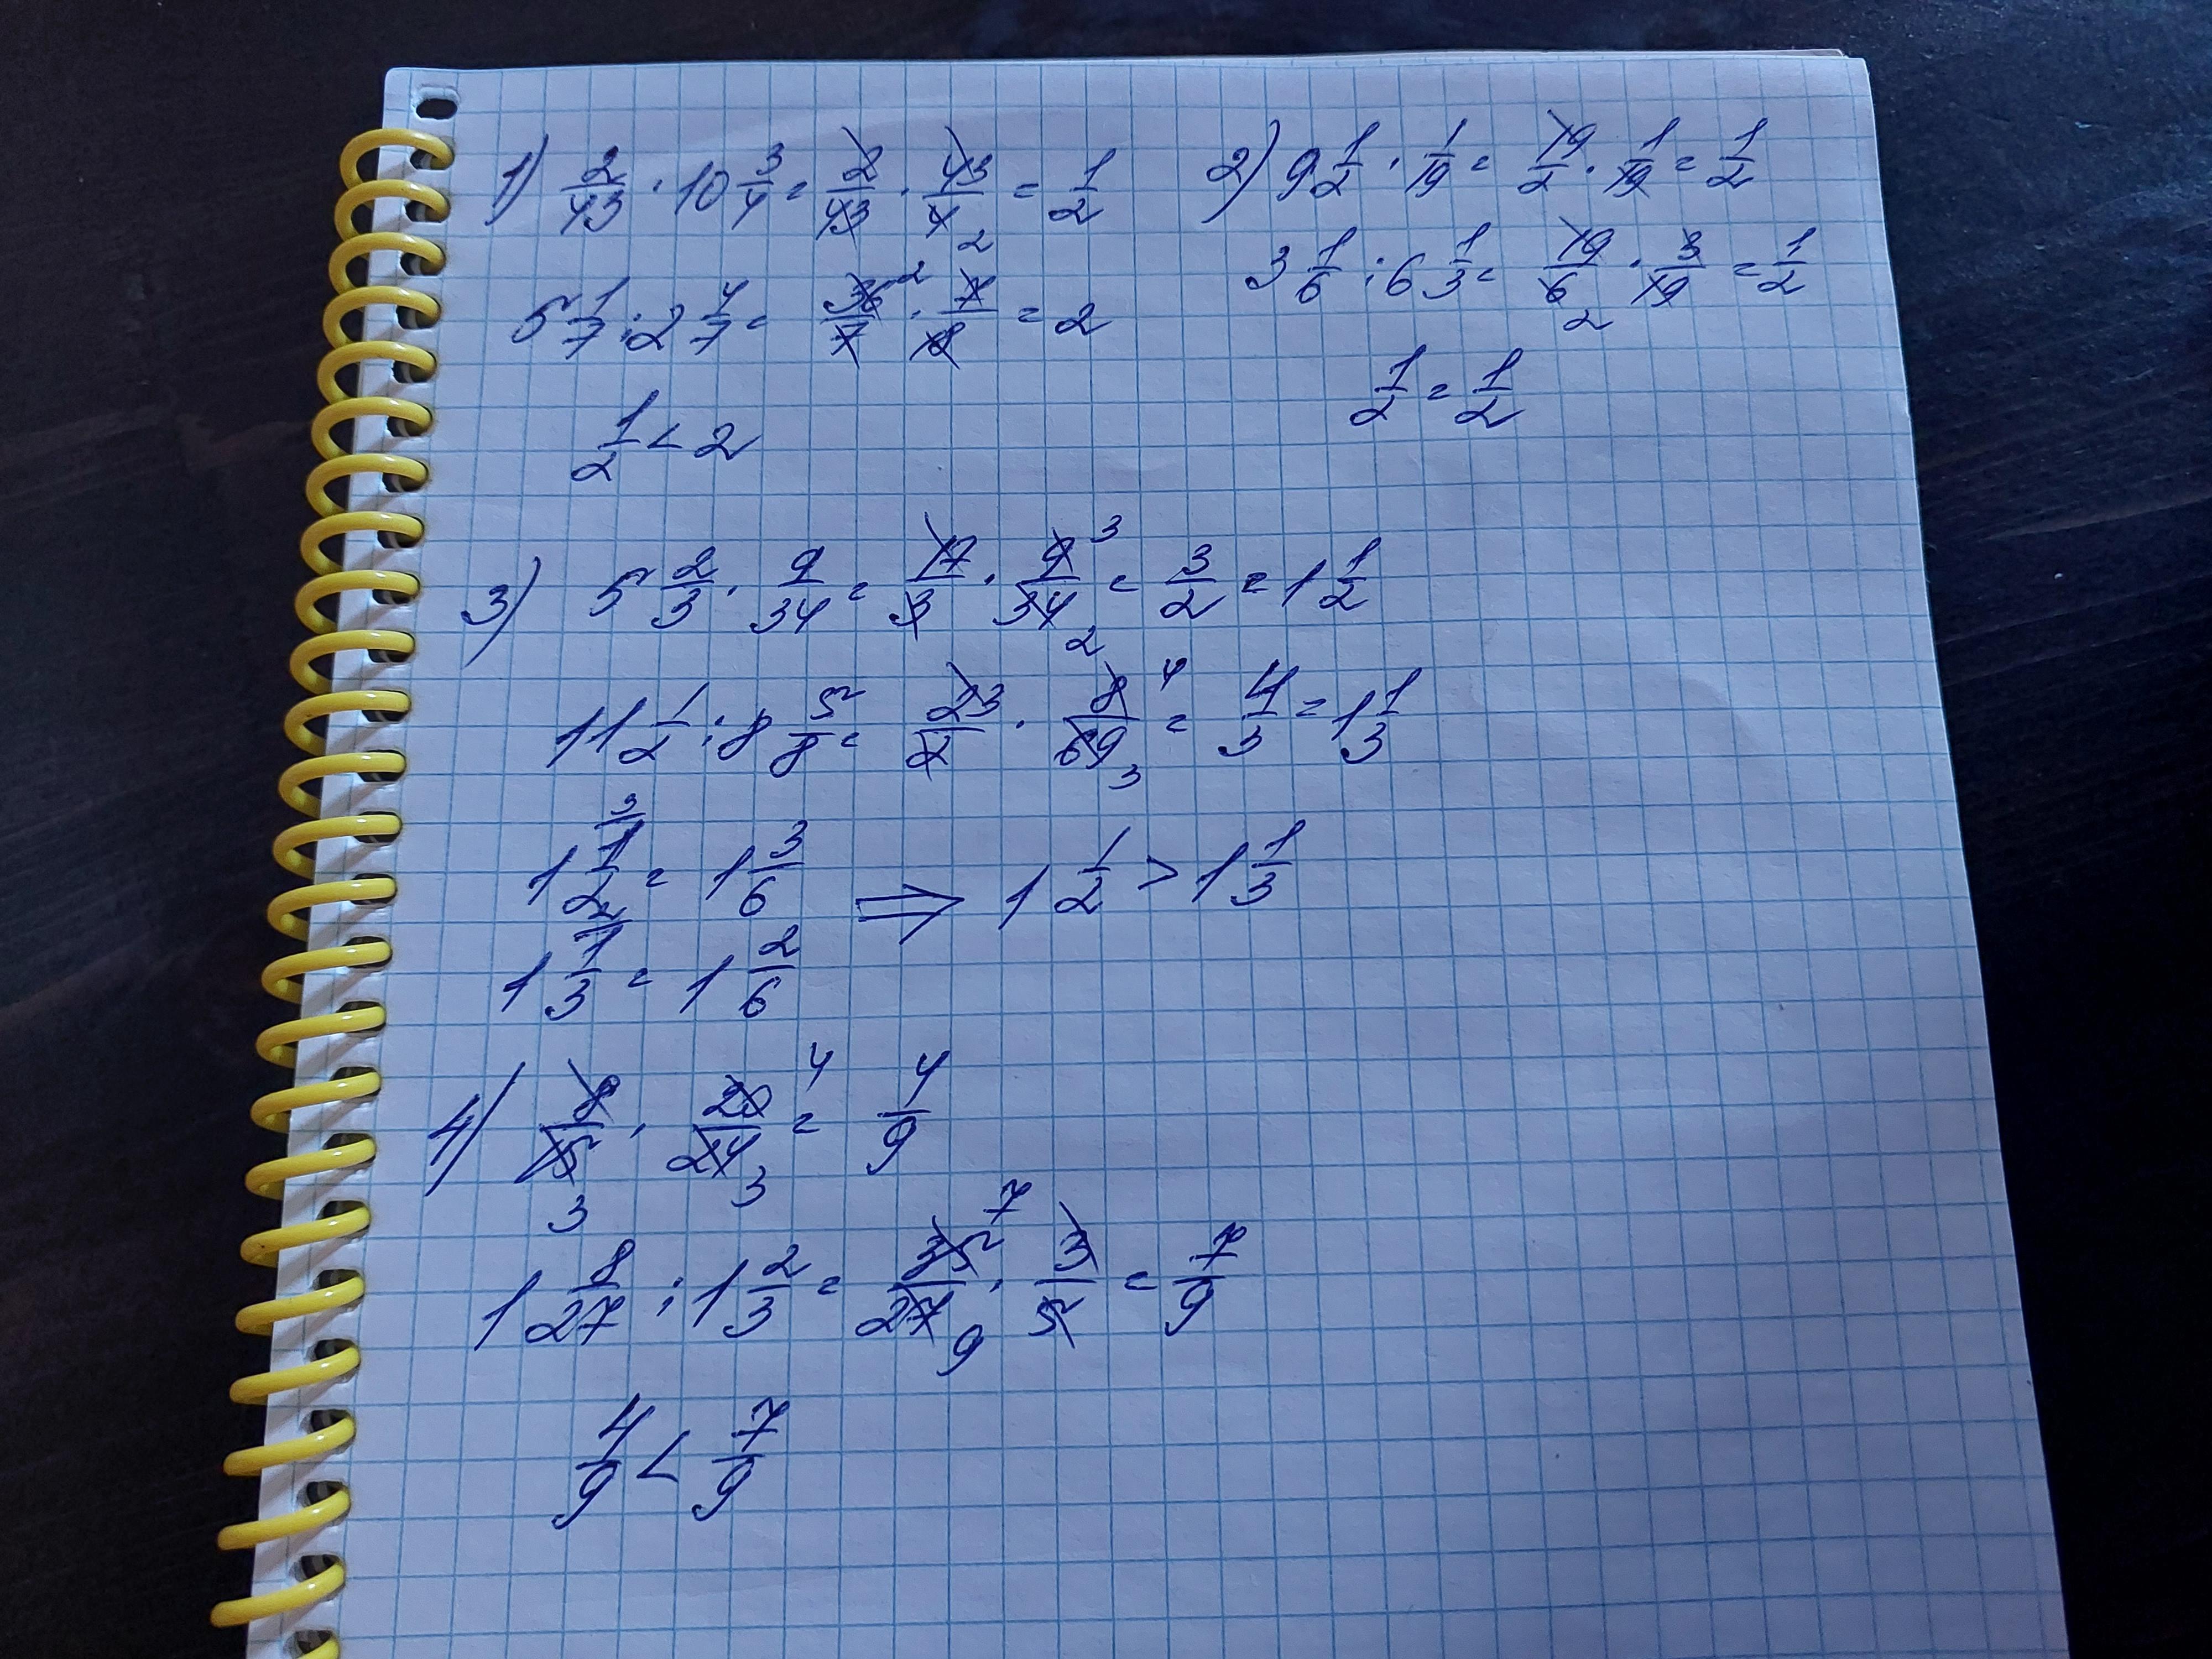 1) 2/43 · 10 3/4 = 2/43 · 43/4 2 = 1/2
5 1/7 : 2 4/7 = 36/7 2 · 7/18 = 2
1/2 < 2
2) 9 1/2 · 1/19 = 19/2 · 1/19 = 1/2
3 1/6 : 6 1/3 = 19/6 2 · 3/19 = 1/2
1/2 = 1/2
3) 5 2/3 · 9/34 = 17/3 · 9/34 3 2 = 3/2 = 1 1/2
11 1/2 : 8 5/8 = 23/2 · 8/69 4 3 = 4/3 = 1 1/3
3 1 1/2 = 1 3/6 ⇒ 1 1/2 > 1 1/3
2 1 1/3 = 1 2/6
4) 8/15 3 · 20/24 4 3 = 4/9
1 8/27 : 1 2/3 = 35/27 7 9 · 3/5 = 7/9
4/9 < 7/9